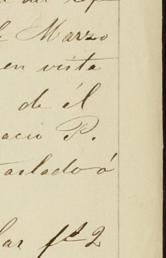 Marzo
en vista
de él
acio P.
taslado á
lar fs 2